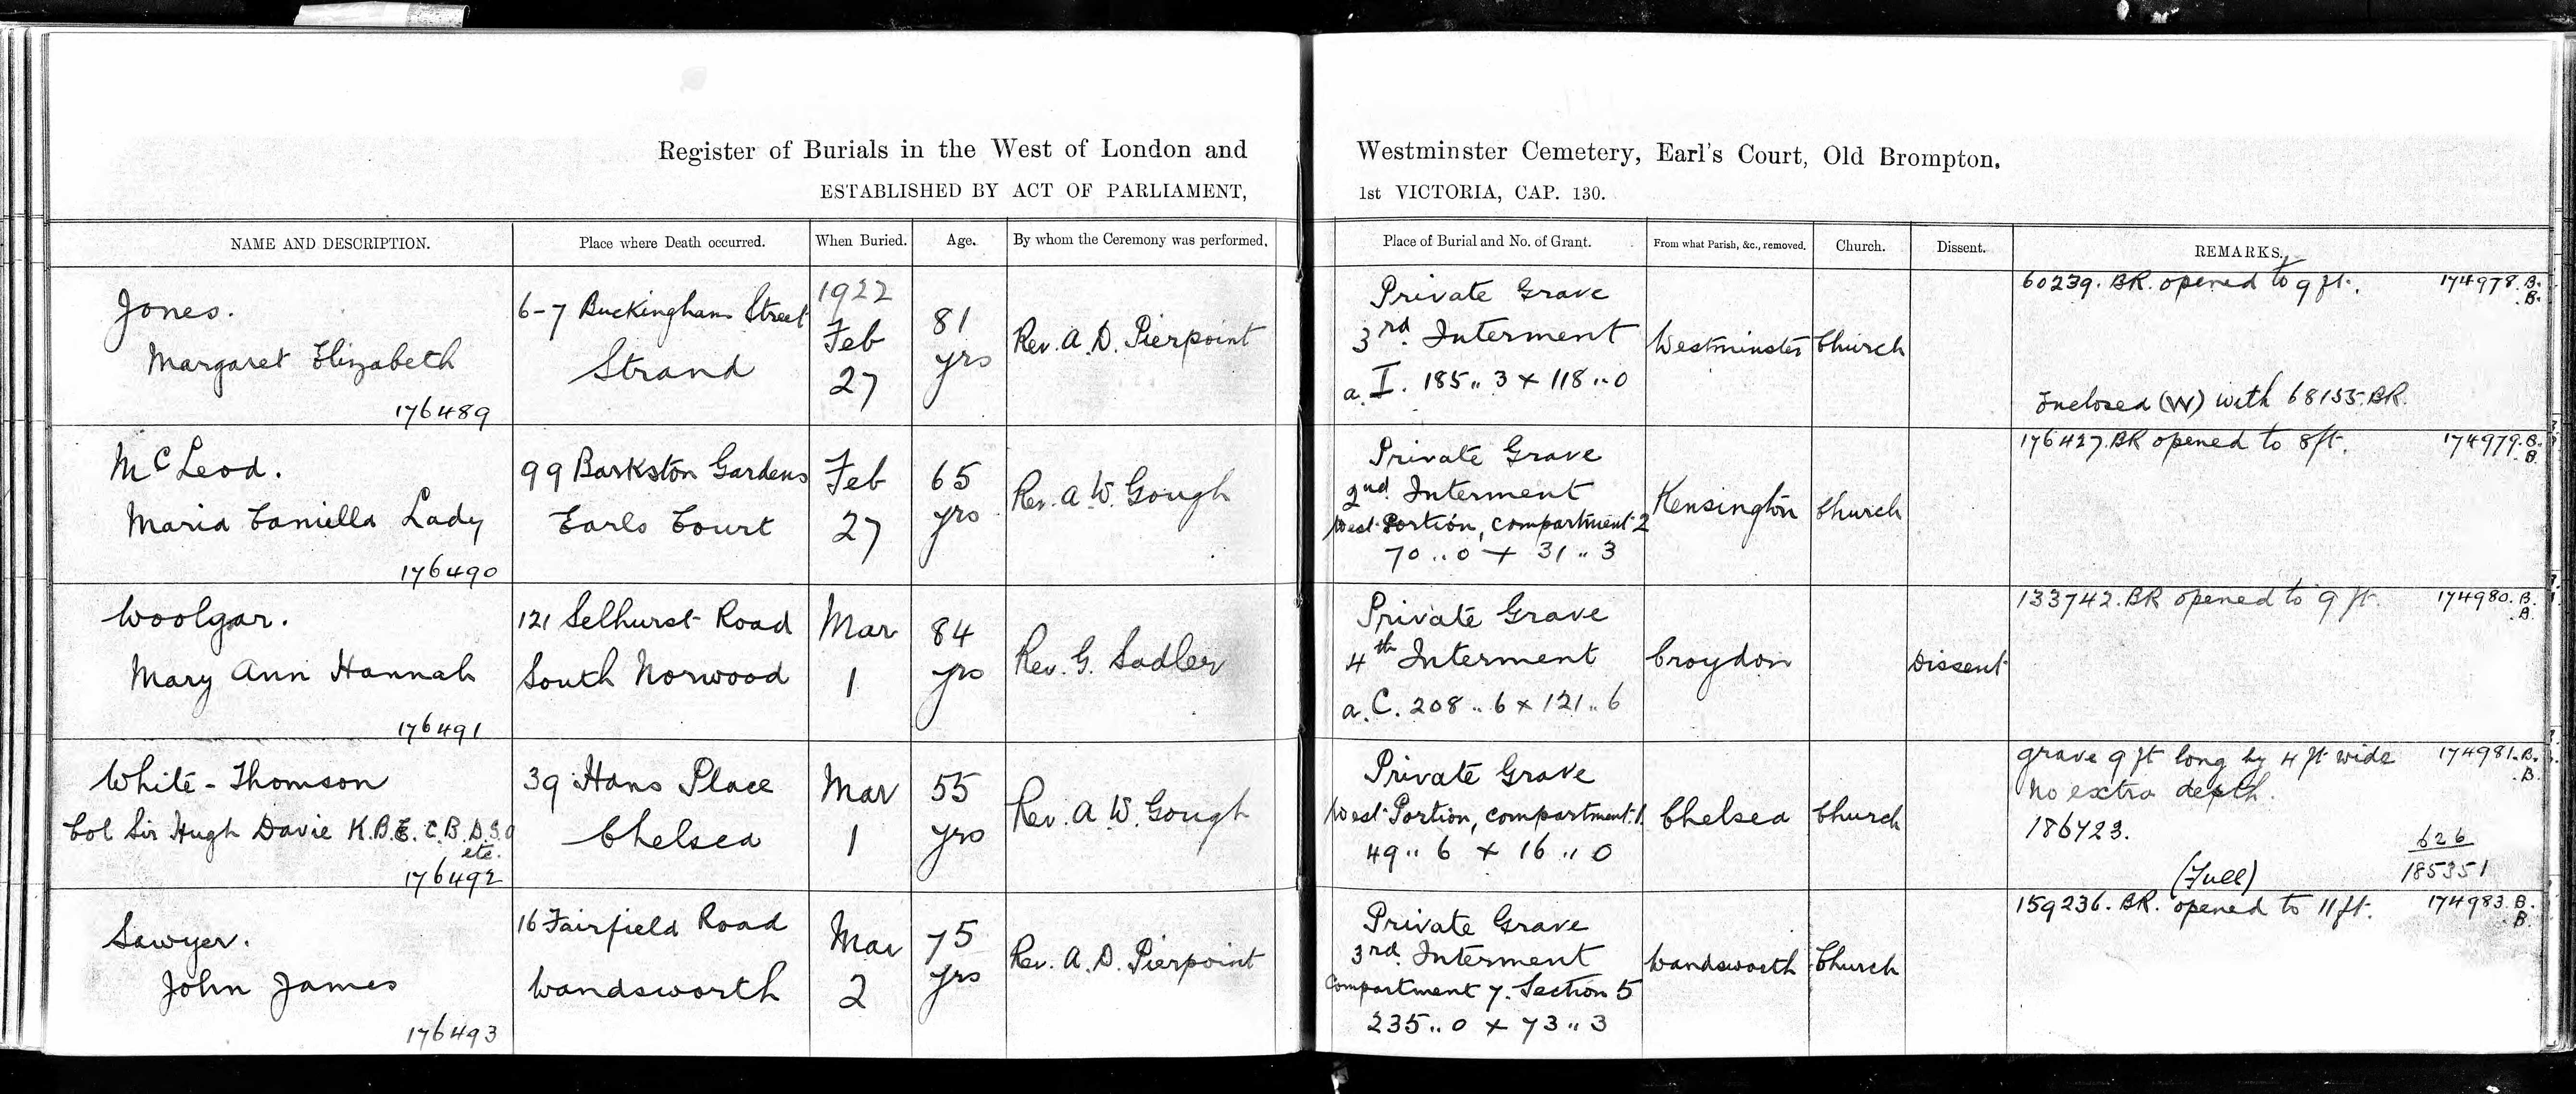 Register of Burials in the West of London and Westminster Cemetery, Earl's Court, Old Brompton.
ESTABLISHED BY ACT OF PARLIAMENT, 1st VICTORIA, CAP. 130.
NAME AND DESCRIPTION. Place where Death occurred. When Buried. Age. By whom the Ceremony was performed. Place of Burial and No. of Grant. From what Parish, &c., removed. Church. Dissent. REMARKS.
Jones.
Margaret Elizabeth
176489
6-7 Buckingham Street
Strand
1922
Feb
27
81
yrs
Rev. A. D. Pierpoint
Private Grave
3rd Interment
a. I. 185 .. 3 x 118 .. 0
Westminster
Church
60239. BR. opened to 9 ft.
174978. B.
B.
Enclosed (W) with 68155. BR.
McLeod.
Maria Camilla Lady
176490
99 Barkston Gardens
Earls Court
Feb
27
65
yrs
Rev. A. W. Gough
Private Grave
2nd Interment
West Portion, compartment 2
70 .. 0 x 31 .. 3
Kensington
Church
176427. BR opened to 8 ft.
174979. B.
B.
Woolgar.
Mary Ann Hannah
176491
121 Selhurst Road
South Norwood
Mar
1
84
yrs
Rev. G. Sadler
Private Grave
4th Interment
a. C. 208 .. 6 x 121 .. 6
Croydon
Dissent
133742. BR opened to 9 ft.
174980. B.
B.
White-Thomson
Col Sir Hugh Davie K.B.E. C.B. D.S.O
etc.
176492
39 Hans Place
Chelsea
Mar
1
55
yrs
Rev. A. W. Gough
Private Grave
West Portion, compartment 1.
49 .. 6 x 16 .. 0
Chelsea
Church
grave 9 ft long by 4 ft wide
174981. B.
B.
No extra depth.
186723.
626
185351
(Full)
Sawyer.
John James
176493
16 Fairfield Road
Wandsworth
Mar
2
75
yrs
Rev. A. D. Pierpoint
Private Grave
3rd Interment
Compartment 7. Section 5
235 .. 0 x 73 .. 3
Wandsworth
Church
159236. BR. opened to 11 ft.
174983. B.
B.